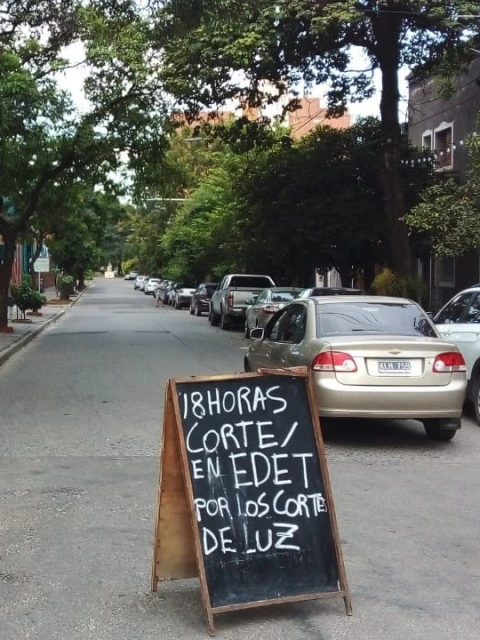 18 HORAS
CORTE/
EN EDET
POR LOS CORTES
DE LUZ